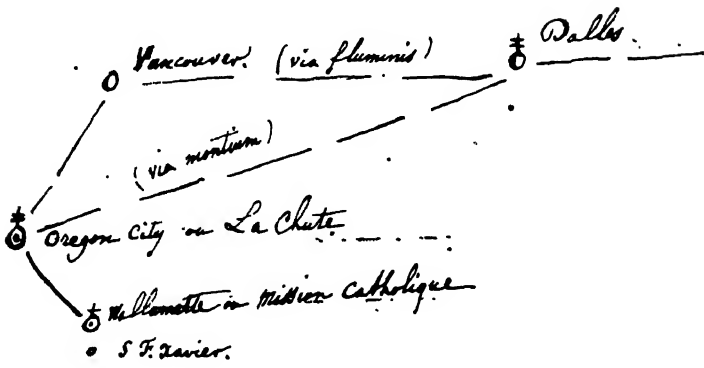 Vancouver. (via fluminis)
Dalles.
(via montium)
Oregon City ou La Chute
Wallamette ou Mission Catholique
S F. Xavier.